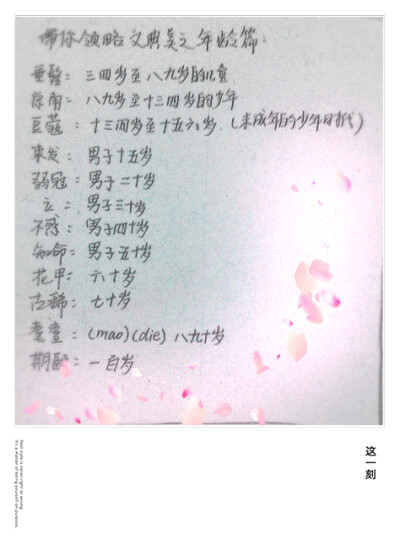 带你领略文典美之年龄篇:
垂髫: 三四岁至八九岁的儿童
八九岁至十三四岁的少年
豆蔻: 十三四岁至十五六岁.(未成年的少年时代)
束发: 男子十五岁
弱冠: 男子二十岁
立: 男子三十岁
不惑: 男子四十岁
知命: 男子五十岁
花甲: 六十岁
古稀: 七十岁
耄耋: (mao)(die) 八九十岁
期颐: 一百岁
这一刻